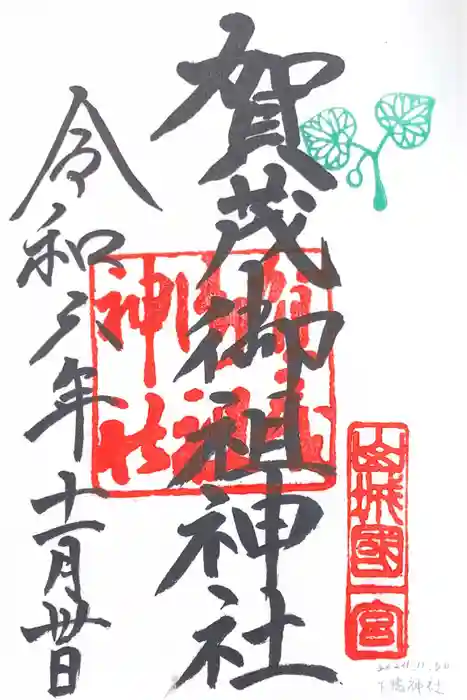 賀茂御祖神社
山城國一宮
令和六年十一月卅日
賀茂御祖神社
2024.11.30
下鴨神社